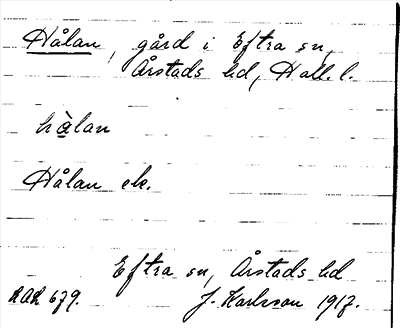 Hålan, gård i Eftra sn,
Årstads hd, Hall. l.
hàlan
Hålan ek.
Eftra sn, Årstads hd
RAÄ 679. J. Karlsson 1917.